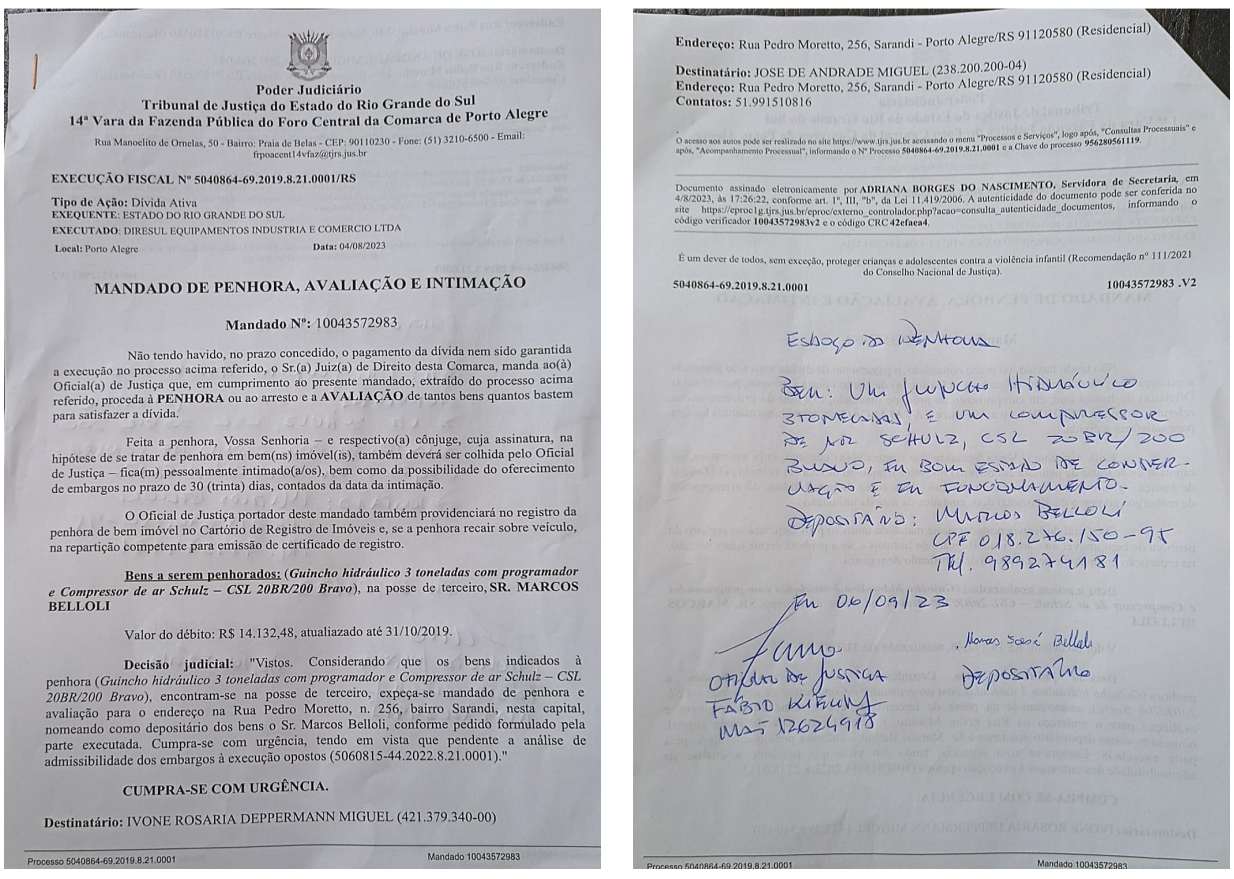 Poder Judiciário
Tribunal de Justiça do Estado do Rio Grande do Sul
14ª Vara da Fazenda Pública do Foro Central da Comarca de Porto Alegre
Rua Manoelito de Ornelas, 50 - Bairro: Praia de Belas - CEP: 90110230 - Fone: (51) 3210-6500 - Email:
frpoacent14vfaz@tjrs.jus.br
EXECUÇÃO FISCAL Nº 5040864-69.2019.8.21.0001/RS
Tipo de Ação: Dívida Ativa
EXEQUENTE: ESTADO DO RIO GRANDE DO SUL
EXECUTADO: DIRESUL EQUIPAMENTOS INDUSTRIA E COMERCIO LTDA
Local: Porto Alegre Data: 04/08/2023
MANDADO DE PENHORA, AVALIAÇÃO E INTIMAÇÃO
Mandado Nº: 10043572983
Não tendo havido, no prazo concedido, o pagamento da dívida nem sido garantida
a execução no processo acima referido, o Sr.(a) Juiz(a) de Direito desta Comarca, manda ao(à)
Oficial(a) de Justiça que, em cumprimento ao presente mandado, extraído do processo acima
referido, proceda à PENHORA ou ao arresto e a AVALIAÇÃO de tantos bens quantos bastem
para satisfazer a dívida.
Feita a penhora, Vossa Senhoria – e respectivo(a) cônjuge, cuja assinatura, na
hipótese de se tratar de penhora em bem(ns) imóvel(is), também deverá ser colhida pelo Oficial
de Justiça – fica(m) pessoalmente intimado(a/os), bem como da possibilidade do oferecimento
de embargos no prazo de 30 (trinta) dias, contados da data da intimação.
O Oficial de Justiça portador deste mandado também providenciará no registro da
penhora de bem imóvel no Cartório de Registro de Imóveis e, se a penhora recair sobre veículo,
na repartição competente para emissão de certificado de registro.
Bens a serem penhorados: (Guincho hidráulico 3 toneladas com programador
e Compressor de ar Schulz – CSL 20BR/200 Bravo), na posse de terceiro, SR. MARCOS
BELLOLI
Valor do débito: R$ 14.132,48, atualiazado até 31/10/2019.
Decisão judicial: "Vistos. Considerando que os bens indicados à
penhora (Guincho hidráulico 3 toneladas com programador e Compressor de ar Schulz – CSL
20BR/200 Bravo), encontram-se na posse de terceiro, expeça-se mandado de penhora e
avaliação para o endereço na Rua Pedro Moretto, n. 256, bairro Sarandi, nesta capital,
nomeando como depositário dos bens o Sr. Marcos Belloli, conforme pedido formulado pela
parte executada. Cumpra-se com urgência, tendo em vista que pendente a análise de
admissibilidade dos embargos à execução opostos (5060815-44.2022.8.21.0001)."
CUMPRA-SE COM URGÊNCIA.
Destinatário: IVONE ROSARIA DEPPERMANN MIGUEL (421.379.340-00)
Processo 5040864-69.2019.8.21.0001 Mandado 10043572983
Endereço: Rua Pedro Moretto, 256, Sarandi - Porto Alegre/RS 91120580 (Residencial)
Destinatário: JOSE DE ANDRADE MIGUEL (238.200.200-04)
Endereço: Rua Pedro Moretto, 256, Sarandi - Porto Alegre/RS 91120580 (Residencial)
Contatos: 51.991510816
O acesso aos autos pode ser realizado no site https://www.tjrs.jus.br acessando o menu "Processos e Serviços", logo após, "Consultas Processuais" e
após, "Acompanhamento Processual", informando o Nº Processo 5040864-69.2019.8.21.0001 e a Chave do processo 956280561119.
Documento assinado eletronicamente por ADRIANA BORGES DO NASCIMENTO, Servidora de Secretaria, em
4/8/2023, às 17:26:22, conforme art. 1º, III, "b", da Lei 11.419/2006. A autenticidade do documento pode ser conferida no
site https://eproc1g.tjrs.jus.br/eproc/externo_controlador.php?acao=consulta_autenticidade_documentos, informando o
código verificador 10043572983v2 e o código CRC 42efaea4.
É um dever de todos, sem exceção, proteger crianças e adolescentes contra a violência infantil (Recomendação nº 111/2021
do Conselho Nacional de Justiça).
5040864-69.2019.8.21.0001 10043572983 .V2
ESBOÇO DA PENHORA
BEM: UM HIDRÁULICO
3 TONELADAS, E UM COMPRESSOR
DE AR SCHULZ, CSL 20BR/200
BRAVO, EM BOM ESTADO DE CONSER-
VAÇÃO E EM FUNCIONAMENTO.
DEPOSITÁRIO: MARCOS BELLOLI
CPF 018.276.150-95
TEL. 989274181
EM 06/09/23
OFICIAL DE JUSTIÇA
FÁBIO
MAT 12624918
Marcos José Belloli
DEPOSITÁRIO
Processo 5040864-69.2019.8.21.0001 Mandado 10043572983